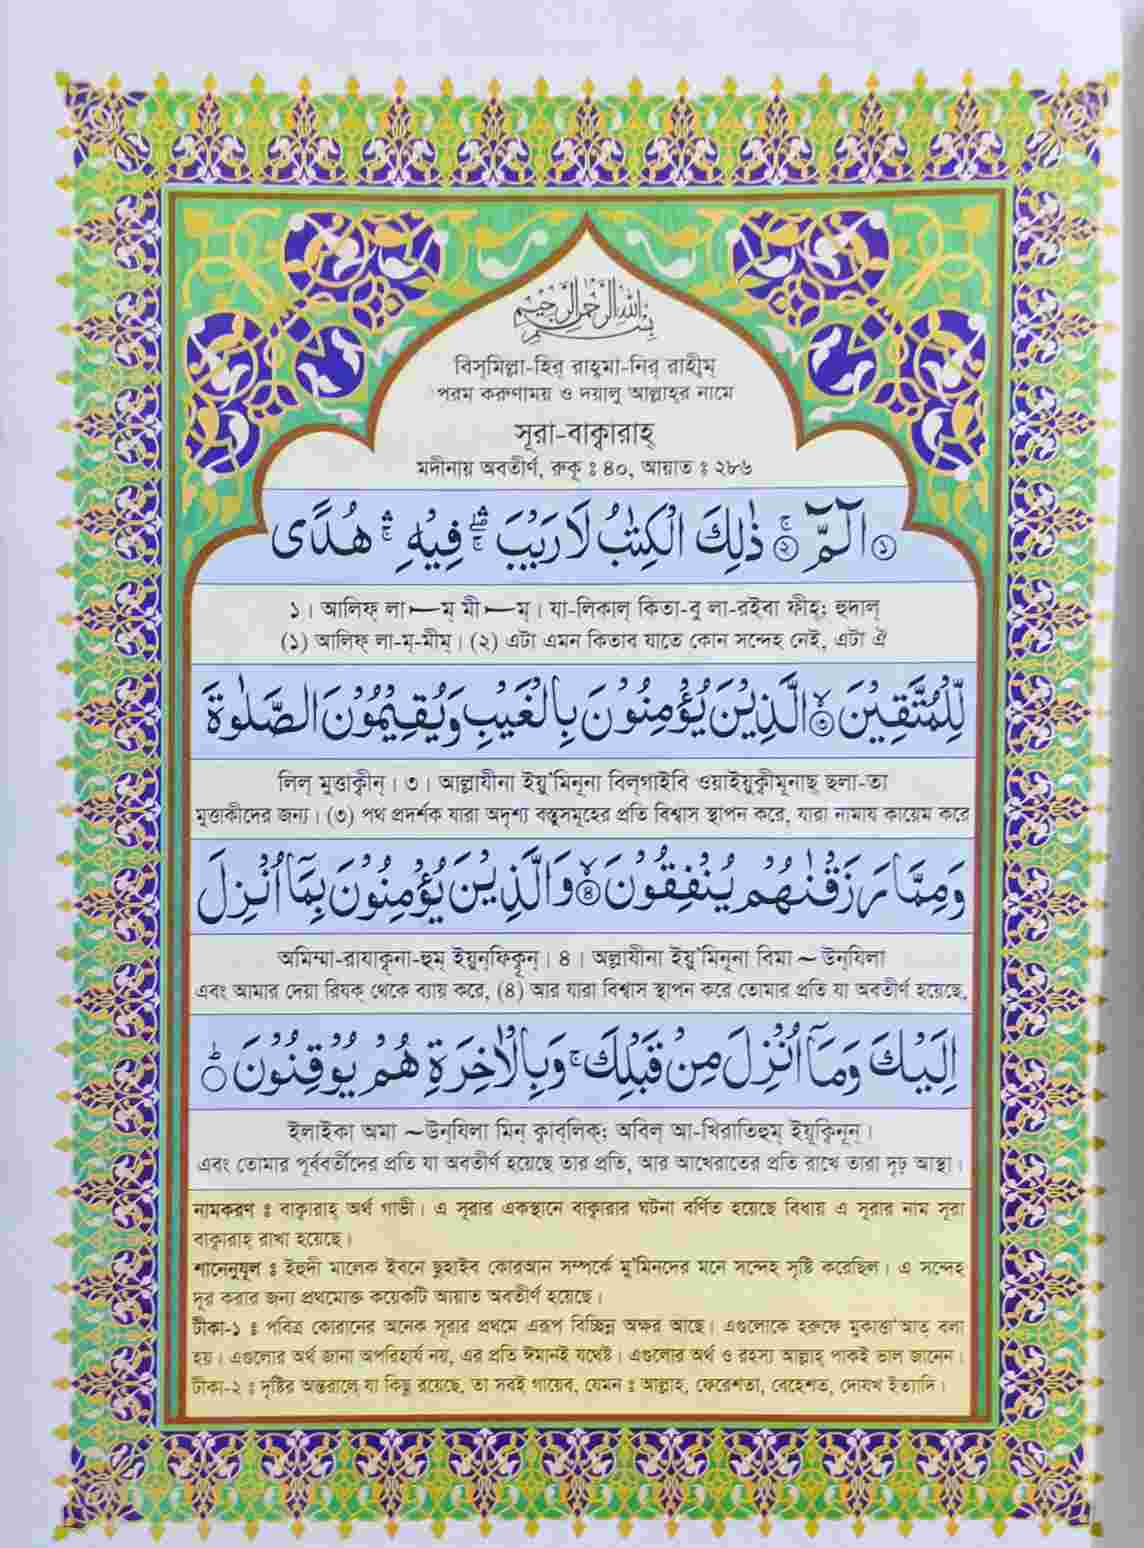 بسم الله الرحمن الرحيم
বিস্‌মিল্লা-হির্ রাহ্‌মা-নির্ রাহীম্
পরম করুণাময় ও দয়ালু আল্লাহ্‌র নামে
সূরা-বাক্বারাহ্
মদীনায় অবতীর্ণ, রুকূ ঃ ৪০, আয়াত ঃ ২৮৬
الٓمّٓ ۚ﴿২﴾ ذٰلِكَ الْكِتٰبُ لَا رَيْبَ ۛۖۚ فِيْهِ ۛۚ هُدًى ﴿১﴾
১। আলিফ্ লা—ম্ মী—ম্। যা-লিকাল্ কিতা-বু লা-রইবা ফীহ্; হুদাল্
(১) আলিফ্ লা-ম্-মীম্। (২) এটা এমন কিতাব যাতে কোন সন্দেহ নেই, এটা ঐ
لِّلْمُتَّقِيْنَ ﴿৩﴾ۙ الَّذِيْنَ يُؤْمِنُوْنَ بِالْغَيْبِ وَيُقِيْمُوْنَ الصَّلٰوةَ
লিল্ মুত্তাক্বীন্। ৩। আল্লাযীনা ইয়ু'মিনূনা বিল্‌গাইবি ওয়াইয়ুক্বীমূনাছ্ ছলা-তা
মুত্তাকীদের জন্য। (৩) পথ প্রদর্শক যারা অদৃশ্য বস্তুসমূহের প্রতি বিশ্বাস স্থাপন করে, যারা নামায কায়েম করে
وَمِمَّا رَزَقْنٰهُمْ يُنْفِقُوْنَ ﴿৪﴾ۙ وَالَّذِيْنَ يُؤْمِنُوْنَ بِمَآ اُنْزِلَ
অমিম্মা-রাযাক্বনা-হুম্ ইয়ুন্‌ফিক্বূন্। ৪। অল্লাযীনা ইয়ু'মিনূনা বিমা ~ উন্‌যিলা
এবং আমার দেয়া রিযক থেকে ব্যায় করে, (৪) আর যারা বিশ্বাস স্থাপন করে তোমার প্রতি যা অবতীর্ণ হয়েছে,
اِلَيْكَ وَمَآ اُنْزِلَ مِنْ قَبْلِكَ ۚ وَبِالْاٰخِرَةِ هُمْ يُوْقِنُوْنَ ؕ
ইলাইকা অমা ~উন্‌যিলা মিন্ ক্বাব্‌লিক্; অবিল্ আ-খিরাতিহুম্ ইয়ূক্বিনূন্।
এবং তোমার পূর্ববর্তীদের প্রতি যা অবতীর্ণ হয়েছে তার প্রতি, আর আখেরাতের প্রতি রাখে তারা দৃঢ় আস্থা।
নামকরণ ঃ বাক্বারাহ্ অর্থ গাভী। এ সূরার একস্থানে বাক্বারার ঘটনা বর্ণিত হয়েছে বিধায় এ সূরার নাম সূরা
বাক্বারাহ্ রাখা হয়েছে।
শানেনুযূল ঃ ইহুদী মালেক ইবনে ছুহাইব কোরআন সম্পর্কে মু'মিনদের মনে সন্দেহ সৃষ্টি করেছিল। এ সন্দেহ
দূর করার জন্য প্রথমোক্ত কয়েকটি আয়াত অবতীর্ণ হয়েছে।
টীকা-১ ঃ পবিত্র কোরানের অনেক সূরার প্রথমে এরূপ বিচ্ছিন্ন অক্ষর আছে। এগুলোকে হরুফে মুকাত্তা'আত্ বলা
হয়। এগুলোর অর্থ জানা অপরিহার্য নয়, এর প্রতি ঈমানই যথেষ্ট। এগুলোর অর্থ ও রহস্য আল্লাহ্ পাকই ভাল জানেন।
টীকা-২ ঃ দৃষ্টির অন্তরালে যা কিছু রয়েছে, তা সবই গায়েব, যেমন ঃ আল্লাহ, ফেরেশতা, বেহেশত, দোযখ ইত্যাদি।